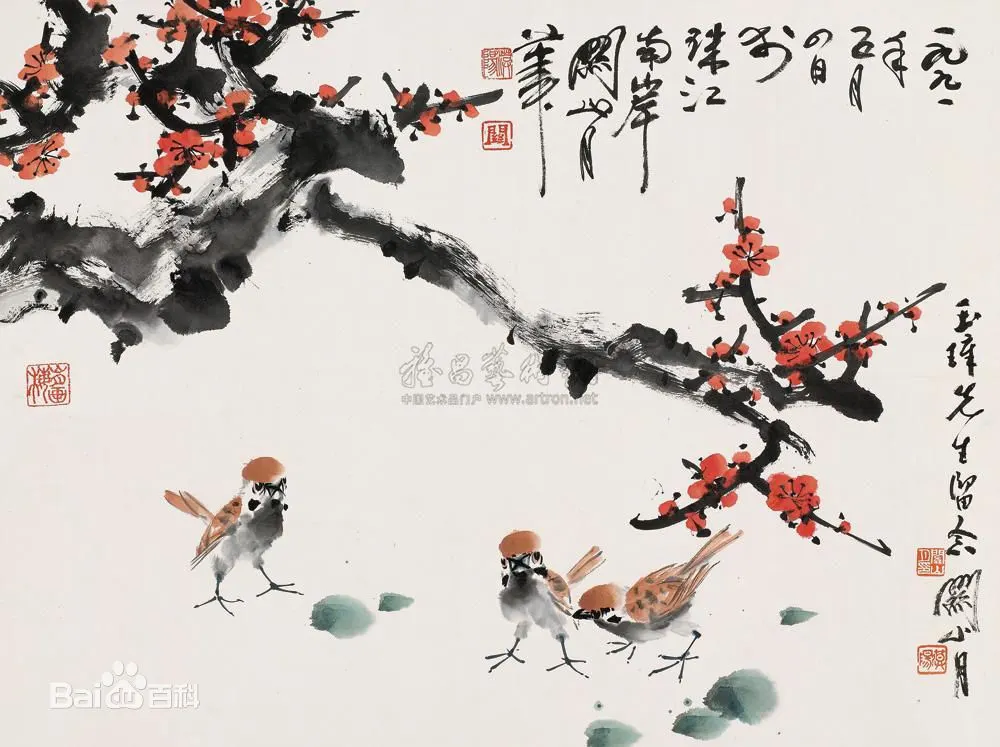 一九九一
年
五月
四日
於
珠江
南岸
關山月
筆
漠陽
關
玉璋先生留念
關山月
關山月
漠陽
雅昌藝術网
中国艺术品门户 www.artron.net
Bai百科